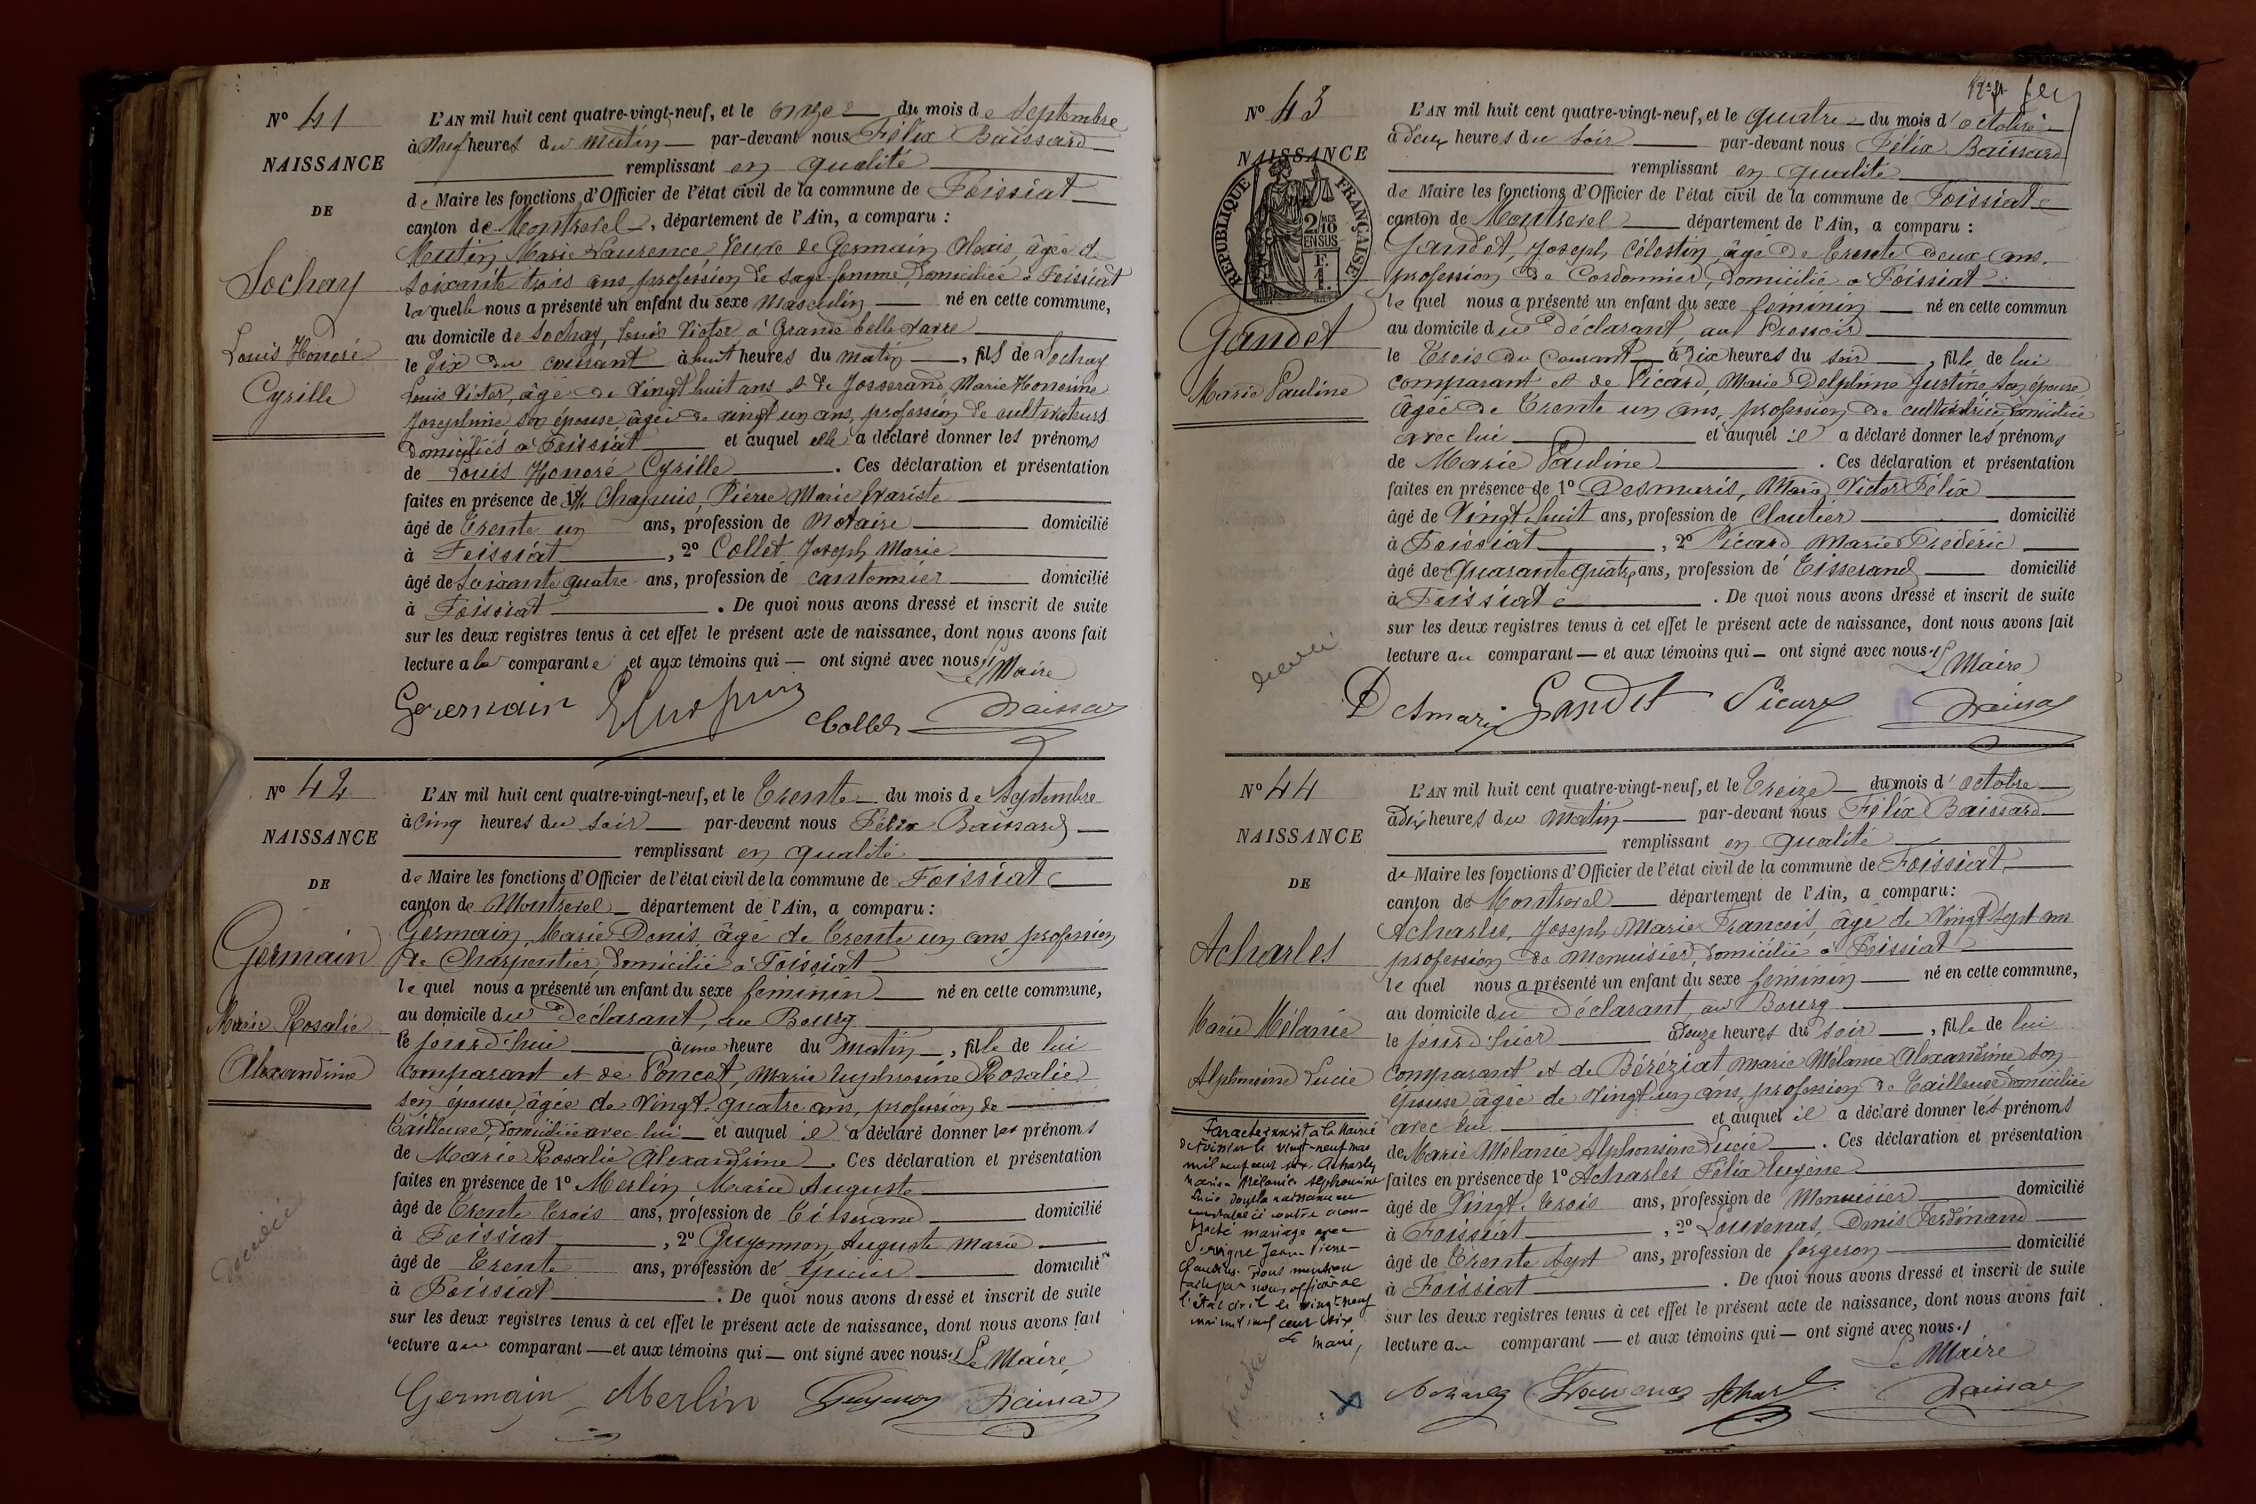 N° 41
NAISSANCE
DE
Sochay
Louis Honoré
Cyrille
L'AN mil huit cent quatre-vingt-neuf, et le onze du mois de Septembre
à neuf heures du matin par-devant nous Félix Baissard
remplissant en qualité
de Maire les fonctions d'Officier de l'état civil de la commune de Foissiat
canton de Montrevel, département de l'Ain, a comparu :
Mutin Marie Laurence veuve de Germain Alexis, âgée de
soixante trois ans, profession de sage-femme, domiciliée à Foissiat
laquelle nous a présenté un enfant du sexe masculin né en cette commune,
au domicile de Sochay, Louis Victor à Grande belle
le dix du courant à huit heures du matin, fils de Sochay
Louis Victor, âgé de vingt huit ans et de Josserand, Marie Honorine
Joséphine son épouse âgée de vingt un ans, profession de cultivateurs
domiciliés à Foissiat et auquel elle a déclaré donner les prénoms
de Louis Honoré Cyrille. Ces déclaration et présentation
faites en présence de 1° Chapuis, Pierre Marie Evariste
âgé de trente un ans, profession de Notaire domicilié
à Foissiat, 2° Collet Joseph Marie
âgé de soixante quatre ans, profession de cantonnier domicilié
à Foissiat. De quoi nous avons dressé et inscrit de suite
sur les deux registres tenus à cet effet le présent acte de naissance, dont nous avons fait
lecture a la comparante et aux témoins qui — ont signé avec nous.
Le Maire
Germain Collet
N° 42
NAISSANCE
DE
Germain
Marie Rosalie
Alexandrine
L'AN mil huit cent quatre-vingt-neuf, et le trente du mois de Septembre
à cinq heures du soir par-devant nous Félix Baissard
remplissant en qualité
de Maire les fonctions d'Officier de l'état civil de la commune de Foissiat
canton de Montrevel département de l'Ain, a comparu :
Germain, Marie Denis, âgé de trente un ans, profession
de Charpentier, domicilié à Foissiat
lequel nous a présenté un enfant du sexe feminin né en cette commune,
au domicile du Déclarant, au Bourg
le jourd'hui à une heure du matin, fille de lui
comparant et de Poncet, Marie Euphrosine Rosalie
son épouse, âgée de vingt-quatre ans, profession de
tailleuse, domiciliée avec lui et auquel il a déclaré donner les prénoms
de Marie Rosalie Alexandrine. Ces déclaration et présentation
faites en présence de 1° Merlin Marie Auguste
âgé de trente trois ans, profession de tisserand domicilié
à Foissiat, 2° Guyonnon, Auguste Marie
âgé de trente ans, profession de épicier domicilié
à Foissiat. De quoi nous avons dressé et inscrit de suite
sur les deux registres tenus à cet effet le présent acte de naissance, dont nous avons fait
lecture au comparant — et aux témoins qui — ont signé avec nous. Le Maire
Germain Merlin Guyonnon
N° 43
NAISSANCE
RÉPUBLIQUE FRANÇAISE
2/10 EN SUS
Gandet
Marie Pauline
L'AN mil huit cent quatre-vingt-neuf, et le quatre du mois d'octobre
à deux heures du soir par-devant nous Félix Baissard
remplissant en qualité
de Maire les fonctions d'Officier de l'état civil de la commune de Foissiat
canton de Montrevel département de l'Ain, a comparu :
Gandet, Joseph Célestin, âgé de trente deux ans,
profession de Cordonnier, domicilié à Foissiat
lequel nous a présenté un enfant du sexe feminin né en cette commun
au domicile du déclarant au Pressoir
le trois du courant à dix heures du soir, fille de lui
comparant et de Picard, Marie Delphine Justine son épouse
âgée de trente un ans, profession de cultivatrice domiciliée
avec lui et auquel il a déclaré donner les prénoms
de Marie Pauline. Ces déclaration et présentation
faites en présence de 1° Desmaris, Marie Victor Félix
âgé de vingt-huit ans, profession de Cloutier domicilié
à Foissiat, 2° Picard Marie Frédéric
âgé de quarante quatre ans, profession de Tisserand domicilié
à Foissiat. De quoi nous avons dressé et inscrit de suite
sur les deux registres tenus à cet effet le présent acte de naissance, dont nous avons fait
lecture au comparant — et aux témoins qui — ont signé avec nous.
Le Maire
Desmaris Gandet Picard
N° 44
NAISSANCE
DE
Acharles
Marie Mélanie
Alphonsine Lucie
L'AN mil huit cent quatre-vingt-neuf, et le treize du mois d'octobre
à dix heures du matin par-devant nous Félix Baissard
remplissant en qualité
de Maire les fonctions d'Officier de l'état civil de la commune de Foissiat
canton de Montrevel département de l'Ain, a comparu :
Acharles, Joseph Marie François, âgé de vingt sept ans
profession de menuisier, domicilié à Foissiat
lequel nous a présenté un enfant du sexe feminin né en cette commune,
au domicile du déclarant, au Bourg
le jour d'hier à onze heures du soir, fille de lui
comparant et de Béréziat Marie Mélanie Alexandrine son
épouse âgée de vingt un ans, profession de tailleuse domiciliée
avec lui et auquel il a déclaré donner les prénoms
de Marie Mélanie Alphonsine Lucie. Ces déclaration et présentation
faites en présence de 1° Acharles Félix Eugène
âgé de vingt-trois ans, profession de Menuisier domicilié
à Foissiat, 2° Louvenas, Denis Ferdinand
âgé de trente sept ans, profession de forgeron domicilié
à Foissiat. De quoi nous avons dressé et inscrit de suite
sur les deux registres tenus à cet effet le présent acte de naissance, dont nous avons fait
lecture au comparant — et aux témoins qui — ont signé avec nous.
Le Maire
Par acte inscrit à la Mairie
de le vingt-neuf mai
mil neuf cent dix, Acharles
Marie Mélanie Alphonsine
Lucie dont la naissance est
constatée ci contre a con-
tracté mariage avec
Jean-Pierre-
Claudius. Dont mention
faite par nous officier de
l'état civil le vingt neuf
mai mil neuf cent dix
Le maire,